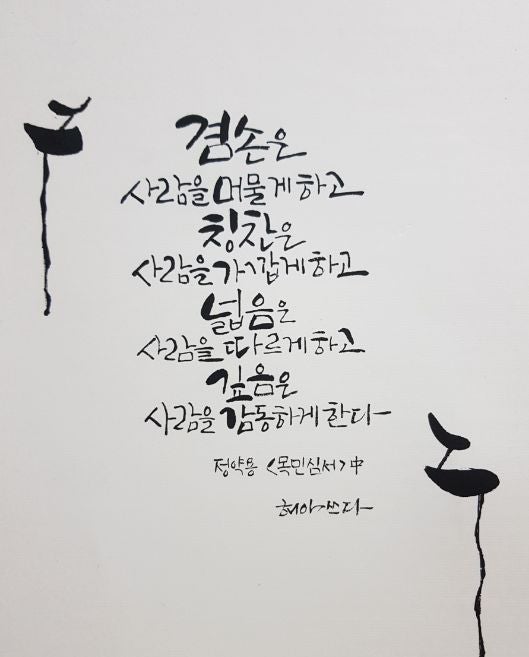 겸손은
사람을 머물게 하고
칭찬은
사람을 가깝게 하고
넓음은
사람을 따르게 하고
깊음은
사람을 감동하게 한다
정약용 <목민심서> 中
희아쓰다